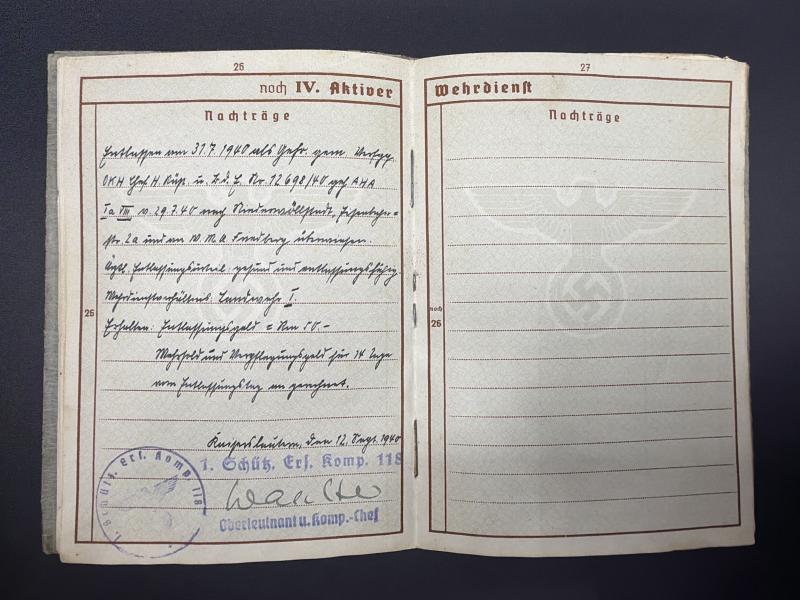 26
noch IV. Aktiver
Nachträge
Entlassen am 31.7.1940 als Gefr. gem. Verfgg.
OKH Chef H. Rüst. u. B.d.E. Nr. 12698/40 geh AHA
Ia VIII v. 29.7.40 nach Niederwöllstadt, Eisenbahn=
str. 2a und an W.M.A Friedberg überwiesen.
Ärztl. Entlassungsurteil: gesund und entlassungsfähig
Wehrdienstverhältnis: Landwehr I.
26
Erhalten: Entlassungsgeld = Rm 50.-
Wehrsold und Verpflegungsgeld für 14 Tage
vom Entlassungstag an gerechnet.
Kaiserslautern, den 12. Sept. 1940
1. Schütz. Ers. Komp. 118
Oberleutnant u. Komp.-Chef
1. Schütz. Ers. Komp. 118
27
Wehrdienst
Nachträge
noch
26